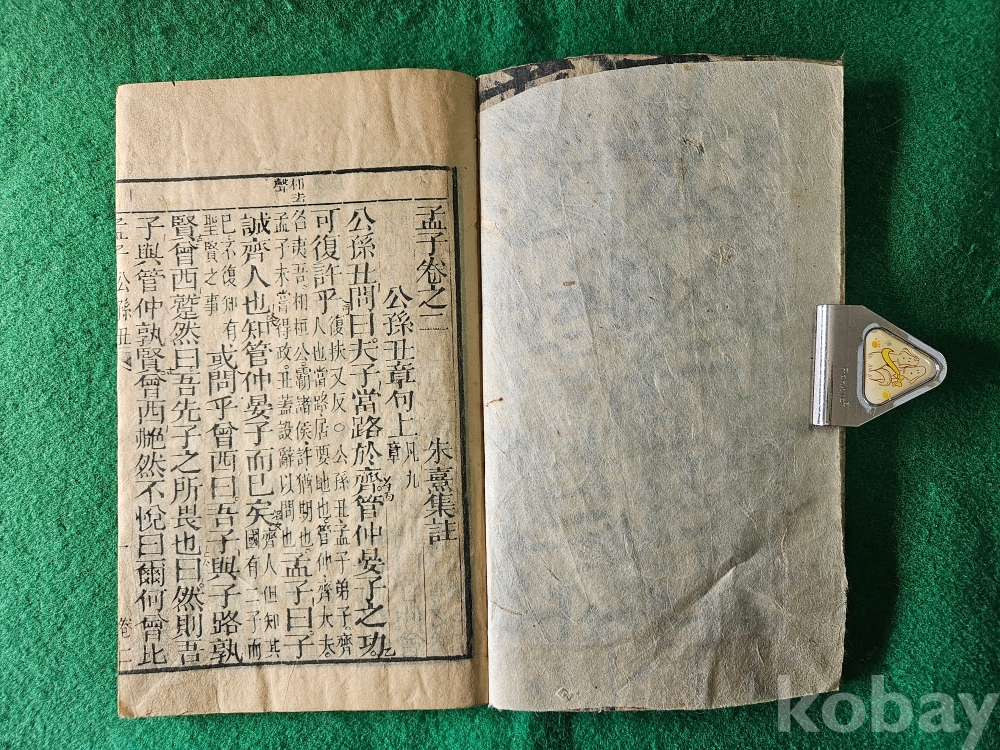 孟子卷之二
朱熹集註
公孫丑章句上 凡九章
公孫丑問曰夫子當路於齊管仲晏子之功
可復許乎 復扶又反○公孫丑孟子弟子齊人也當路居要地也管仲齊大夫
名夷吾相桓公霸諸侯許猶期也孟子未嘗得政丑蓋設辭以問也 孟子曰子
誠齊人也知管仲晏子而已矣 齊人但知其國有二子而
已不復知有聖賢之事 或問乎曾西曰吾子與子路孰
賢曾西蹵然曰吾先子之所畏也曰然則吾
子與管仲孰賢曾西艴然不悅曰爾何曾比
孟子 公孫丑
相去聲
kobay